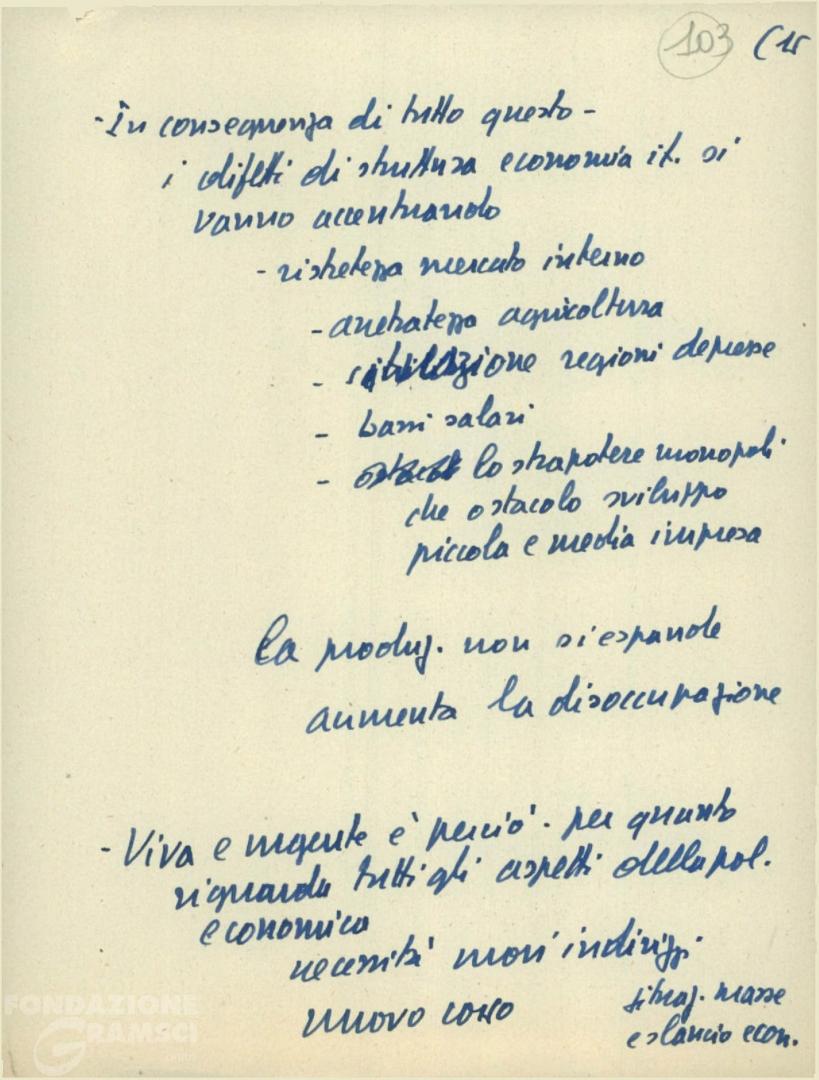 103 (15
- In conseguenza di tutto questo -
i difetti di struttura economia it. si
vanno accentuando
- ristretezza mercato interno
- arretratezza agricoltura
- situazione regioni depresse
- bassi salari
- lo strapotere monopoli
che ostacolo sviluppo
piccola e media impresa
la produz. non si espande
aumenta la disoccupazione
- Viva e urgente è perciò - per quanto
riguarda tutti gli aspetti della pol.
economica
necessità nuovi indirizzi
nuovo corso
situaz. masse
e slancio econ.
FONDAZIONE
GRAMSCI